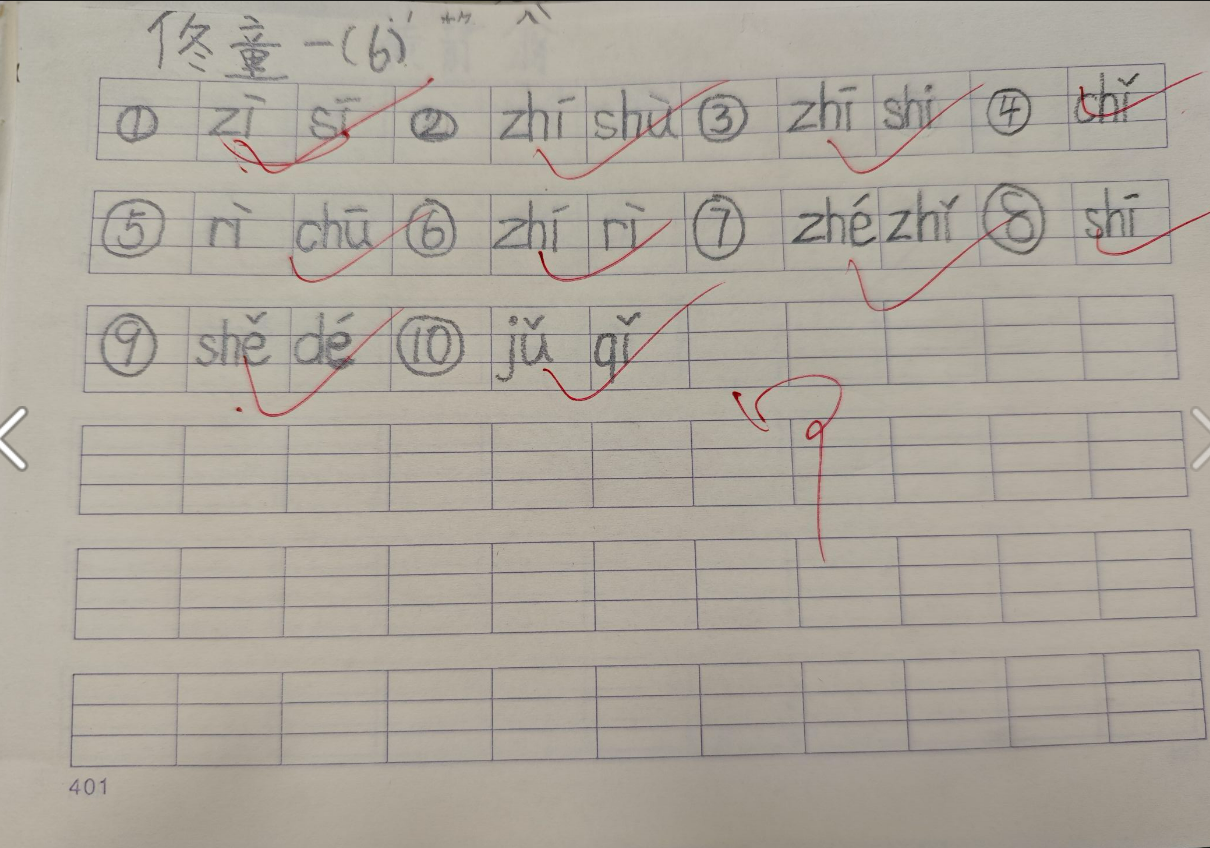 佟童一(6)
① zì sī ② zhí shù ③ zhī shi ④ chǐ
⑤ rì chū ⑥ zhí rì ⑦ zhé zhǐ ⑧ shī
⑨ shě dé ⑩ jǔ qǐ
401